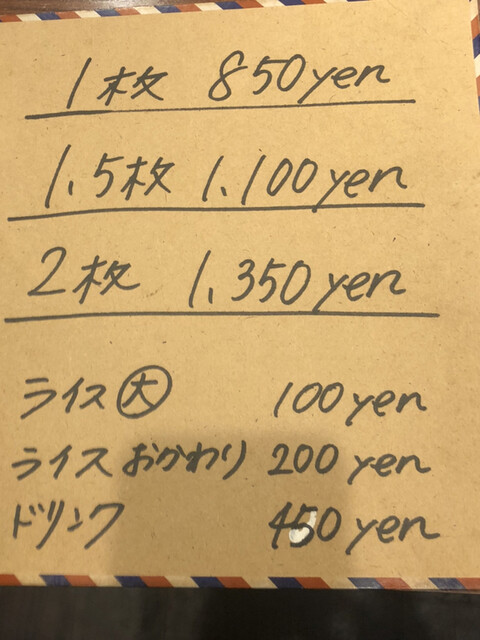 1枚 850yen
1.5枚 1.100yen
2枚 1.350yen
ライス㊛ 100yen
ライスおかわり 200yen
ドリンク 450yen